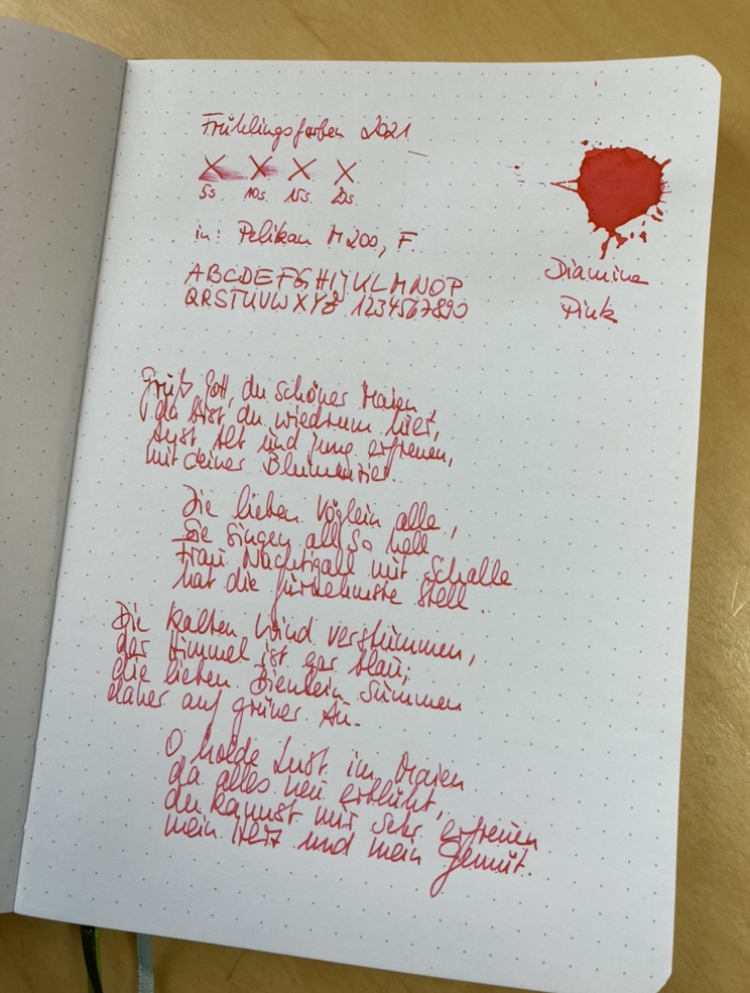 Frühlingsfarben 2021
X X X X
5s. 10s. 15s. 20s.
in: Pelikan M200, F.
ABCDEFGHIJKLMNOP
QRSTUVWXYZ 1234567890
Diamine
Pink
Grüß Gott, du schöner Maien
da bist du wiedrum hier,
tust Alt und Jung erfreuen,
mit deiner Blumenzier.
Die lieben Vöglein alle,
Sie singen all so hell
Frau Nachtigall mit Schalle
hat die fürnehmste Stell.
Die kalten Wind verstummen,
der Himmel ist gar blau;
die lieben Bienlein summen
daher auf grüner Au.
O holde Lust im Maien
da alles neu erblüht,
du kannst mir sehr erfreuen
mein Herz und mein Gemüt.